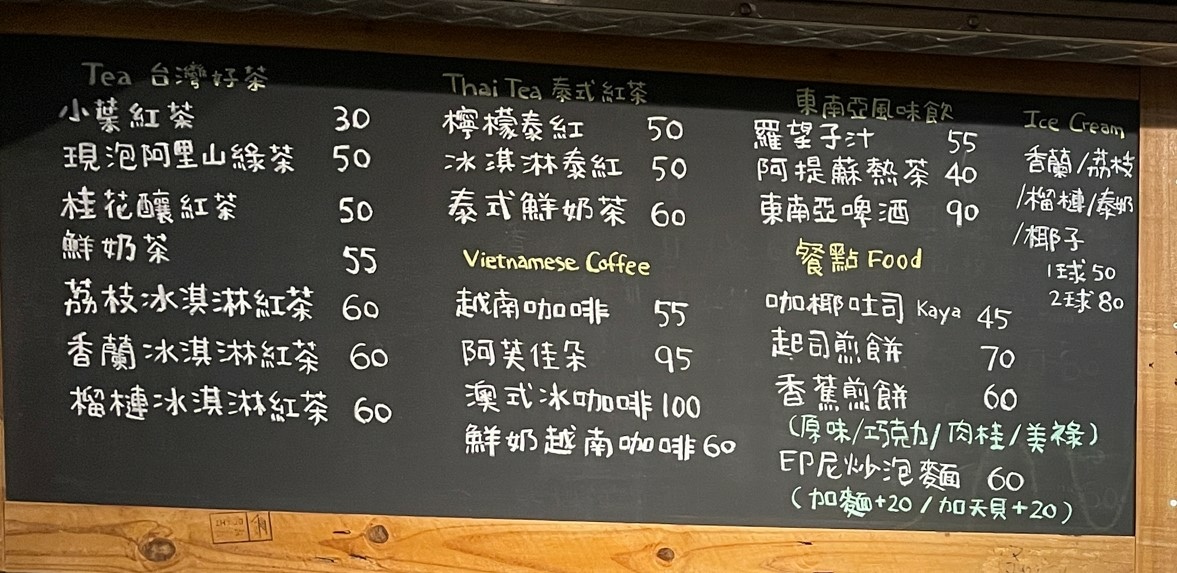 Tea 台灣好茶
小葉紅茶 30
現泡阿里山綠茶 50
桂花釀紅茶 50
鮮奶茶 55
荔枝冰淇淋紅茶 60
香蘭冰淇淋紅茶 60
榴槤冰淇淋紅茶 60
Thai Tea 泰式紅茶
檸檬泰紅 50
冰淇淋泰紅 50
泰式鮮奶茶 60
Vietnamese Coffee
越南咖啡 55
阿芙佳朵 95
澳式冰咖啡 100
鮮奶越南咖啡 60
東南亞風味飲
羅望子汁 55
阿提蘇熱茶 40
東南亞啤酒 90
餐點 Food
咖椰吐司 Kaya 45
起司煎餅 70
香蕉煎餅 60
(原味/巧克力/肉桂/美祿)
印尼炒泡麵 60
(加麵+20/加天貝+20)
Ice Cream
香蘭/荔枝
/榴槤/泰奶
/椰子
1球50
2球80